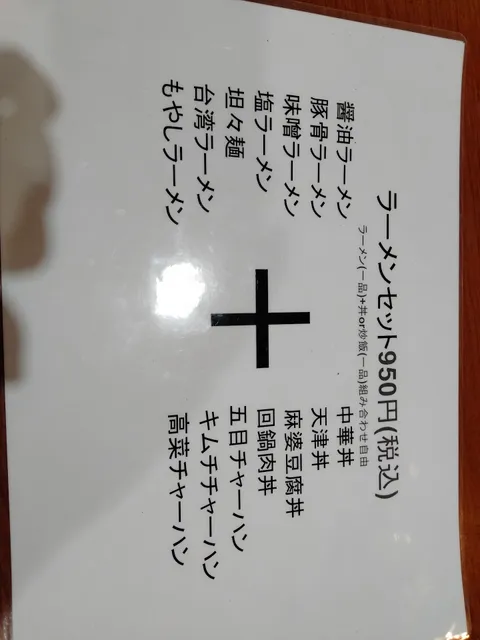 ラーメンセット950円(税込)
ラーメン(一品)+丼or炒飯(一品)組み合わせ自由
醤油ラーメン
豚骨ラーメン
味噌ラーメン
塩ラーメン
坦々麺
台湾ラーメン
もやしラーメン
+
中華丼
天津丼
麻婆豆腐丼
回鍋肉丼
五目チャーハン
キムチチャーハン
高菜チャーハン